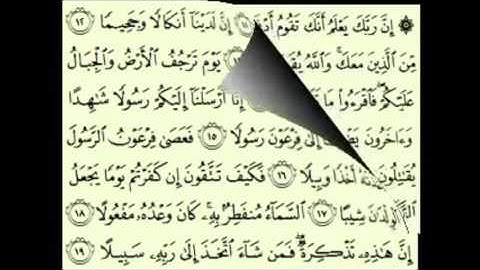 ۞ إِنَّ رَبَّكَ يَعْلَمُ أَنَّكَ تَقُومُ إِنَّ لَدَيْنَآ أَنكَالًا وَجَحِيمًا ١٢
مِّنَ ٱلَّذِينَ مَعَكَ ۚ وَٱللَّهُ يَوْمَ تَرْجُفُ ٱلْأَرْضُ وَٱلْجِبَالُ
عَلَيْكُمْ ۖ فَٱقْرَءُوا۟ مَا إِنَّآ أَرْسَلْنَآ إِلَيْكُمْ رَسُولًا شَـٰهِدًا
وَءَاخَرُونَ إِلَىٰ فِرْعَوْنَ رَسُولًا ١٥ فَعَصَىٰ فِرْعَوْنُ ٱلرَّسُولَ
يُقَـٰتِلُونَ أَخْذًا وَبِيلًا ١٦ فَكَيْفَ تَتَّقُونَ إِن كَفَرْتُمْ يَوْمًا يَجْعَلُ
ٱلْوِلْدَٰنَ شِيبًا ١٧ ٱلسَّمَآءُ مُنفَطِرٌۢ بِهِۦ ۚ كَانَ وَعْدُهُۥ مَفْعُولًا ١٨
إِنَّ هَـٰذِهِۦ تَذْكِرَةٌ ۖ فَمَن شَآءَ ٱتَّخَذَ إِلَىٰ رَبِّهِۦ سَبِيلًا ١٩